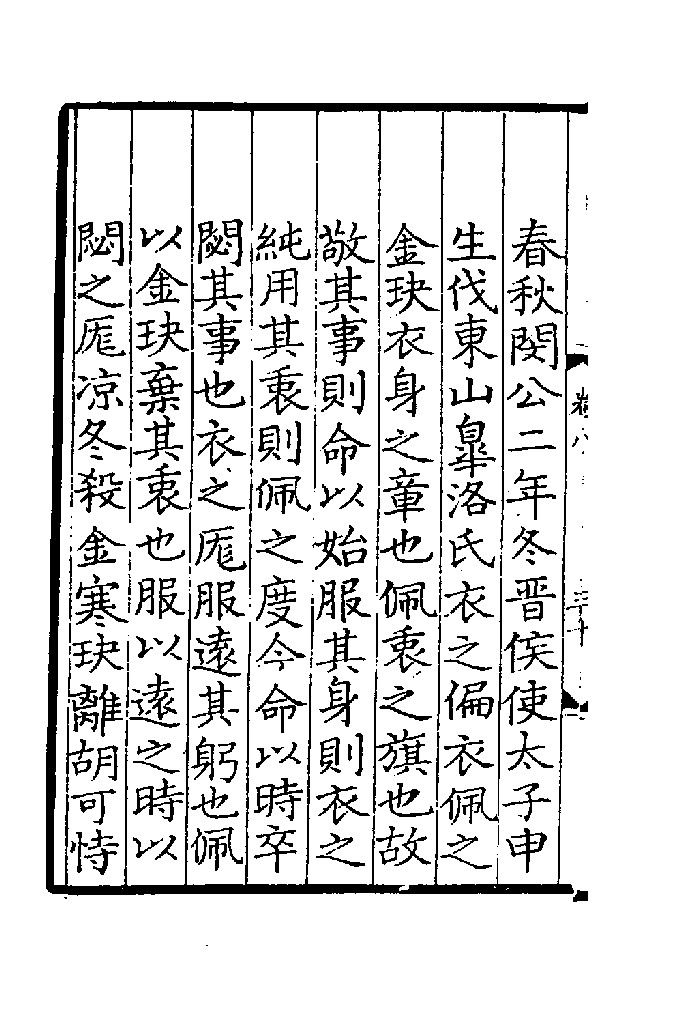 春秋閔公二年冬晋侯使太子申
生伐東山皋洛氏衣之偏衣佩之
金玦衣身之章也佩衷之旗也故
敬其事則命以始服其身則衣之
純用其衷則佩之度今命以時卒
閟其事也衣之厖服遠其躬也佩
以金玦棄其衷也服以遠之時以
閟之厖凉冬殺金寒玦離胡可恃
卷八